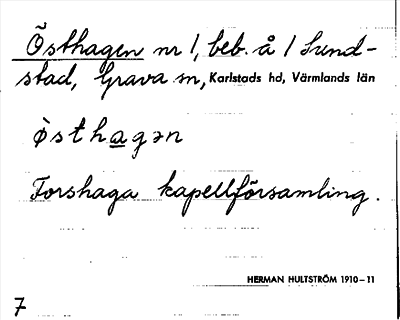 Östhagen nr 1, beb. å 1 Sund-
stad, Grava sn, Karlstads hd, Värmlands län
östhagən
Forshaga kapellförsamling.
HERMAN HULTSTRÖM 1910–11
7